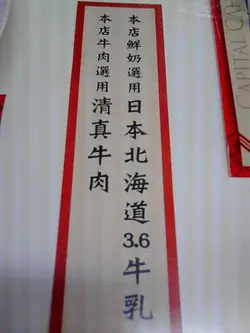 本店鮮奶選用日本北海道3.6牛乳
本店牛肉選用清真牛肉
CAPITAL